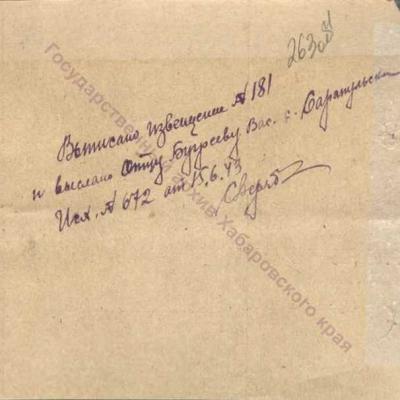 263об
Выписано извещение № 181
и выслано отцу Бугрееву Вас. с. Сарапульское
Исх. № 672 от 15.6.43
Государственный архив Хабаровского края